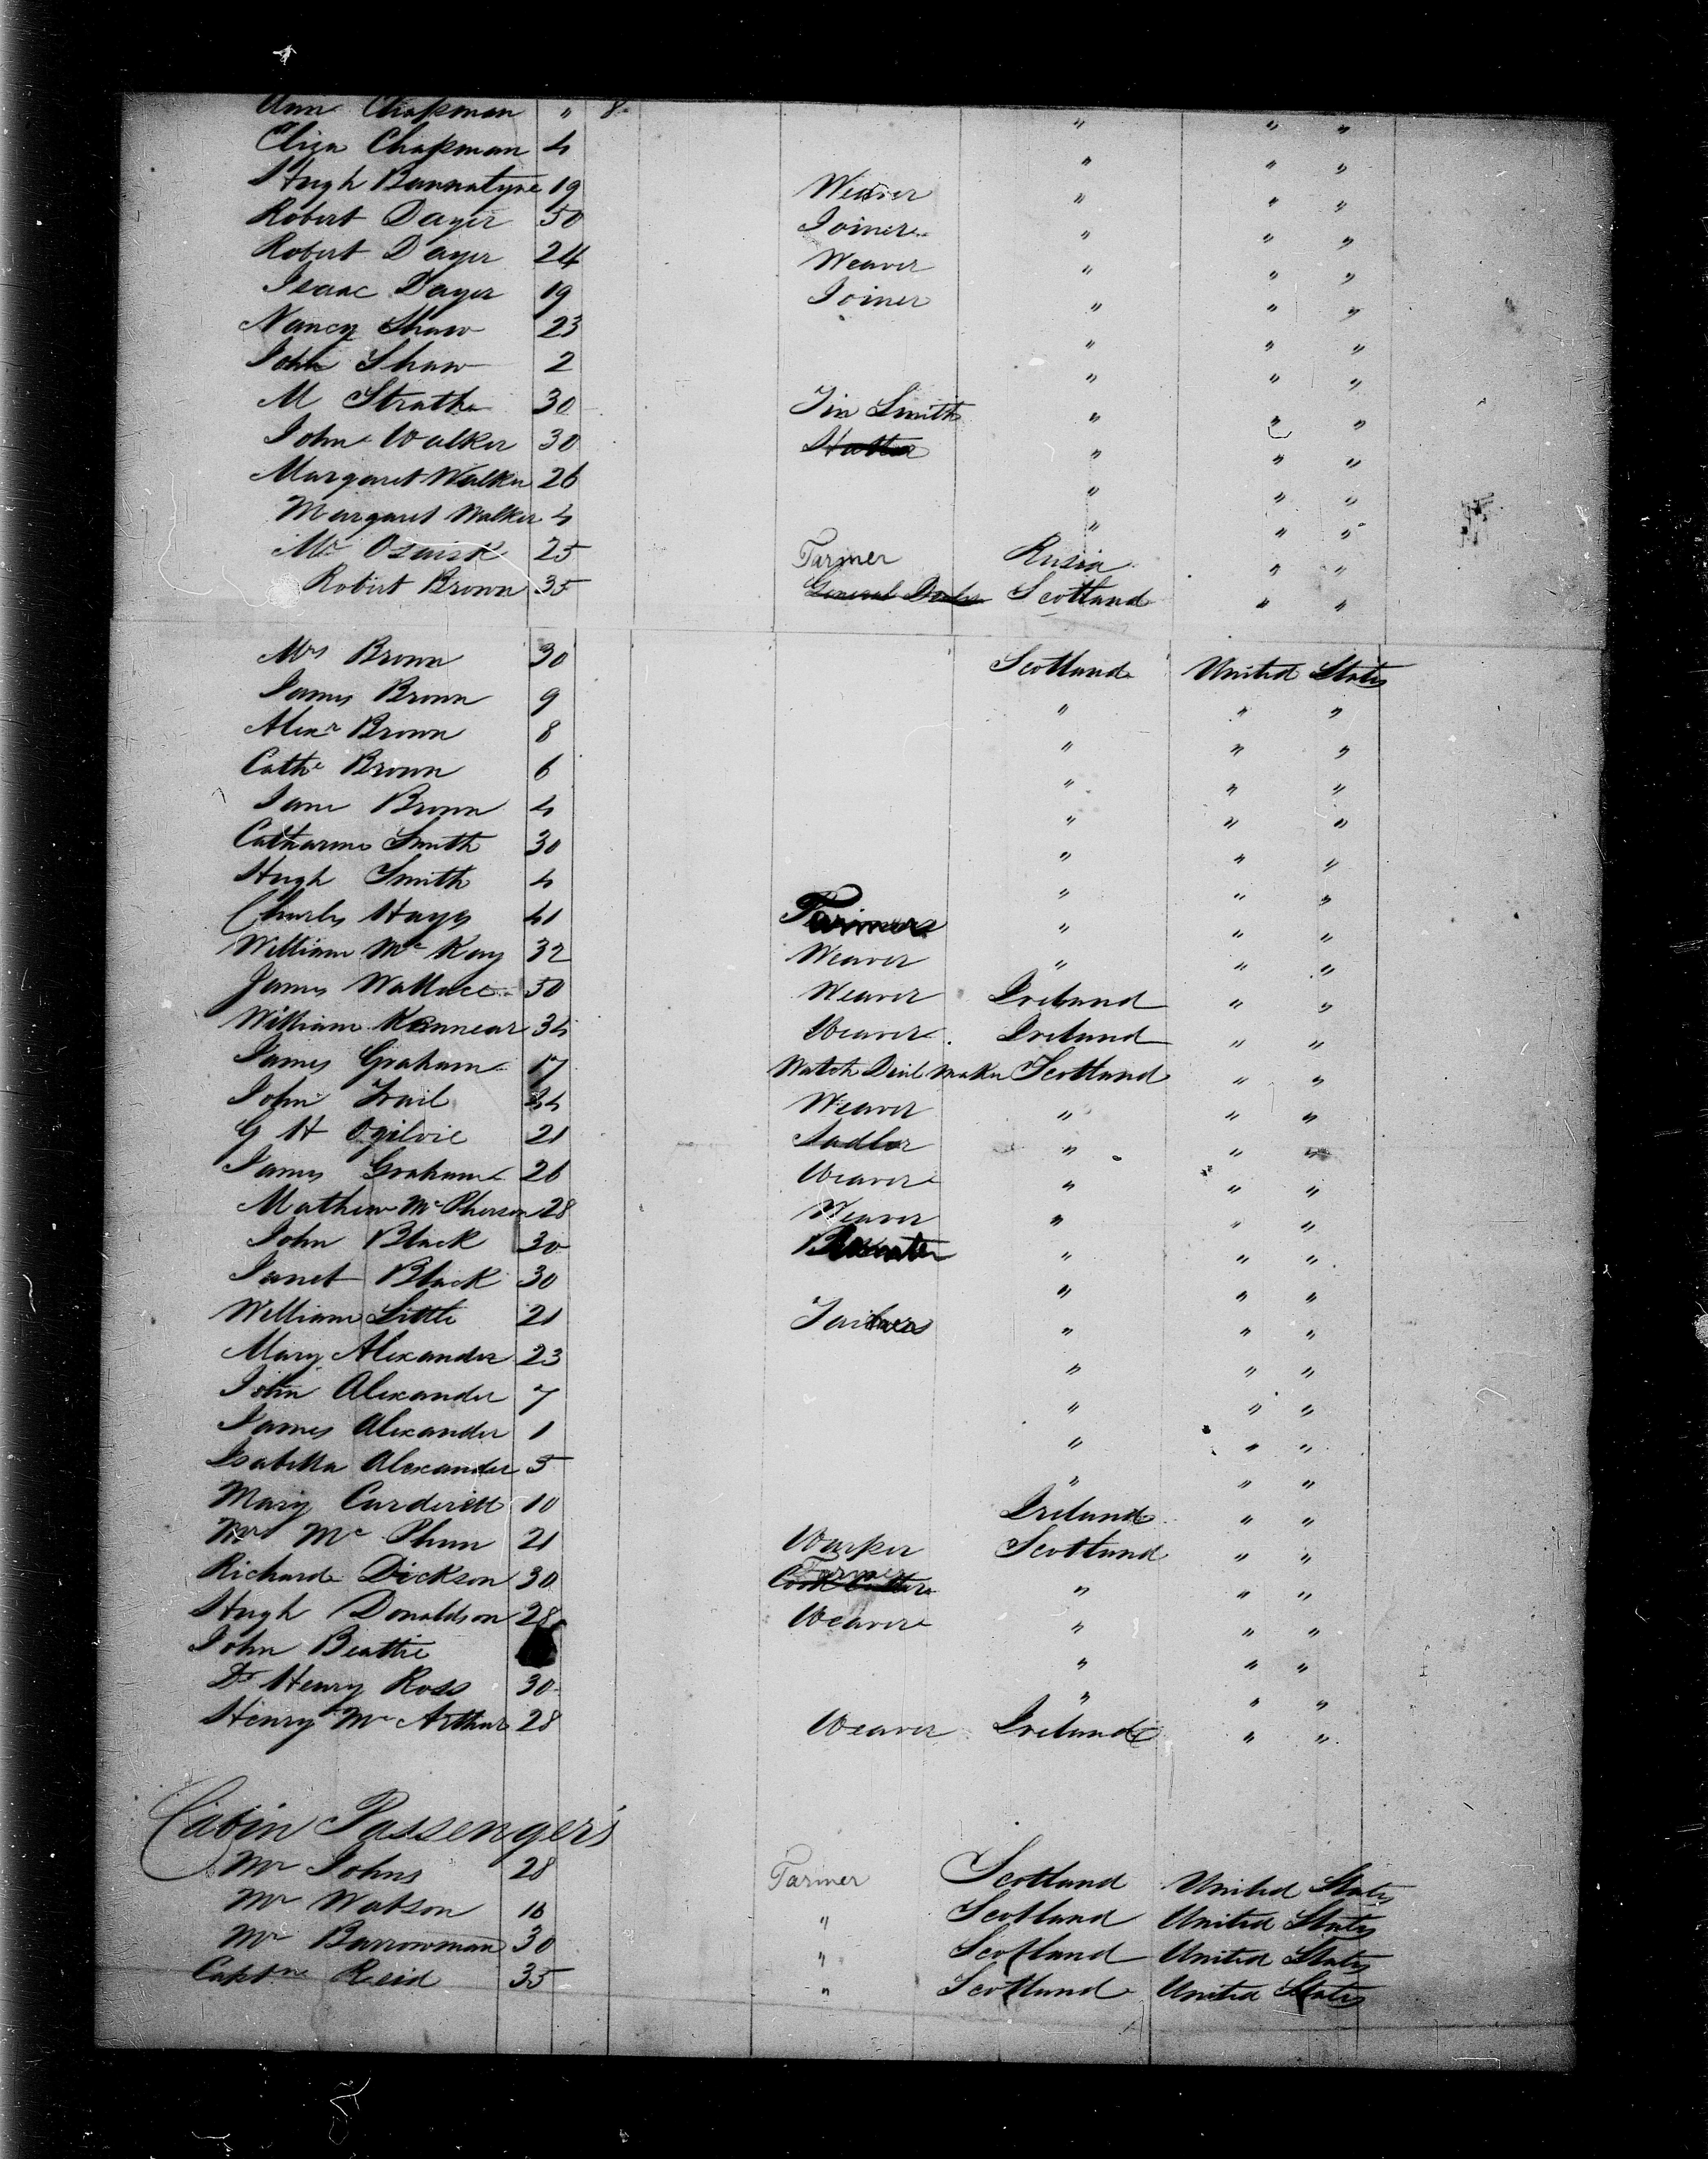 Ann Chapman " 8 " " "
Eliza Chapman 4 " " "
Hugh Bannatyne 19 Weaver " " "
Robert Dayer 50 Joiner " " "
Robert Dayer 24 Weaver " " "
Isaac Dayer 19 Joiner " " "
Nancy Shaw 23 " " "
John Shaw 2 " " "
M Strath 30 Tin Smith " " "
John Walker 30 Hatter " " "
Margaret Walker 26 " " "
Margaret Walker 4 " " "
Mr 25 Farmer Rusia " "
Robert Brown 35 General Dealer Scotland " "
Mrs Brown 30 Scotland United States
James Brown 9 " " "
Alexr Brown 8 " " "
Cathe Brown 6 " " "
Jane Brown 4 " " "
Catharine Smith 30 " " "
Hugh Smith 4 " " "
Charles Hays 41 Farmer " " "
William Mc Kay 32 Weaver " " "
James Wallace 50 Weaver Ireland " "
William Kennear 34 Weaver Ireland " "
James Graham 17 Watch Dial Maker Scotland " "
John Trail 44 Weaver " " "
G H Ogilvie 21 Sadler " " "
James Graham 26 Weaver " " "
Mathew McPherson 28 Weaver " " "
John Black 30 " " "
Janet Black 30 " " "
William Little 21 " " "
Mary Alexander 23 " " "
John Alexander 7 " " "
James Alexander 1 " " "
Isabella Alexander 5 " " "
Mary 10 Ireland " "
Mr Mc Phun 21 Warper Scotland " "
Richard Dickson 30 Farmer " " "
Hugh Donaldson 28 Weaver " " "
John Beattie " " "
Dr Henry Ross 30 " " "
Henry Mc Arthur 28 Weaver Ireland " "
Cabin Passengers
Mr Johns 28 Farmer Scotland United States
Mr Watson 16 " Scotland United States
Mr Barrowman 30 " Scotland United States
Captn Reid 35 " Scotland United States